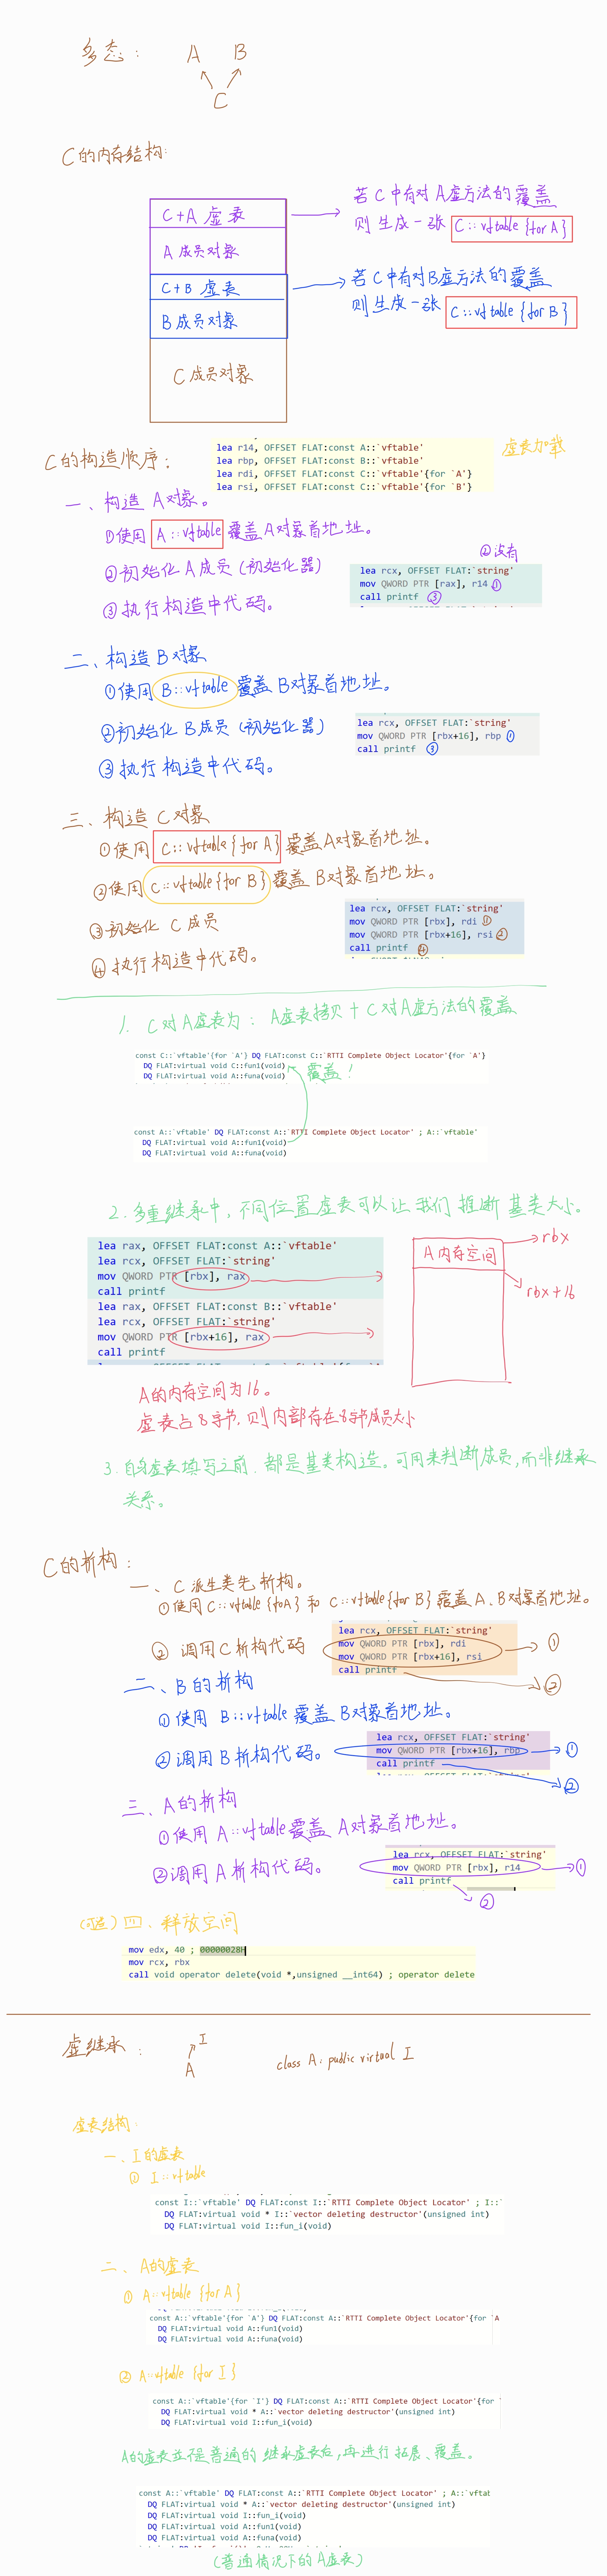 多态：
A B
C
C的内存结构：
C+A 虚表
A 成员对象
C+B 虚表
B 成员对象
C 成员对象
若C中有对A虚方法的覆盖
则生成一张 C::vftable {for A}
若C中有对B虚方法的覆盖
则生成一张 C::vftable {for B}
C的构造顺序：
lea r14, OFFSET FLAT:const A::`vftable'
lea rbp, OFFSET FLAT:const B::`vftable'
lea rdi, OFFSET FLAT:const C::`vftable'{for `A'}
lea rsi, OFFSET FLAT:const C::`vftable'{for `B'}
虚表加载
一、构造 A对象。
①使用 A::vftable 覆盖A对象首地址。
②初始化A成员(初始化器)
③执行构造中代码。
②没有
lea rcx, OFFSET FLAT:`string'
mov QWORD PTR [rax], r14 ①
call printf ③
二、构造B对象
①使用 B::vftable 覆盖 B对象首地址。
②初始化 B成员(初始化器)
③执行构造中代码。
lea rcx, OFFSET FLAT:`string'
mov QWORD PTR [rbx+16], rbp ①
call printf ③
三、构造 C 对象
①使用 C::vftable{for A} 覆盖A对象首地址。
②使用 C::vftable{for B} 覆盖 B对象首地址。
③初始化 C成员
④执行构造中代码。
lea rcx, OFFSET FLAT:`string'
mov QWORD PTR [rbx], rdi ①
mov QWORD PTR [rbx+16], rsi ②
call printf ④
1. C对A虚表为：A虚表拷贝 + C对A虚方法的覆盖
const C::`vftable'{for `A'} DQ FLAT:const C::`RTTI Complete Object Locator'{for `A'}
DQ FLAT:virtual void C::fun1(void)
DQ FLAT:virtual void A::funa(void)
覆盖！
const A::`vftable' DQ FLAT:const A::`RTTI Complete Object Locator' ; A::`vftable'
DQ FLAT:virtual void A::fun1(void)
DQ FLAT:virtual void A::funa(void)
2. 多重继承中，不同位置虚表可以让我们推断基类大小。
lea rax, OFFSET FLAT:const A::`vftable'
lea rcx, OFFSET FLAT:`string'
mov QWORD PTR [rbx], rax
call printf
lea rax, OFFSET FLAT:const B::`vftable'
lea rcx, OFFSET FLAT:`string'
mov QWORD PTR [rbx+16], rax
call printf
A内存空间
rbx
rbx+16
A的内存空间为16。
虚表占8字节，则内部存在8字节成员大小
3. 自身虚表填写之前，都是基类构造。可用来判断成员，而非继承
关系。
C的析构：
一、C派生类先析构。
①使用 C::vftable {foA} 和 C::vftable{for B} 覆盖 A、B对象首地址。
② 调用C析构代码
lea rcx, OFFSET FLAT:`string'
mov QWORD PTR [rbx], rdi
mov QWORD PTR [rbx+16], rsi
call printf
①
②
二、B的析构
①使用 B::vftable 覆盖 B对象首地址。
②调用B析构代码。
lea rcx, OFFSET FLAT:`string'
mov QWORD PTR [rbx+16], rbp
call printf
①
②
三、A的析构
①使用 A::vftable 覆盖 A对象首地址。
②调用A析构代码。
lea rcx, OFFSET FLAT:`string'
mov QWORD PTR [rbx], r14
call printf
①
②
(可选) 四、释放空间
mov edx, 40 ; 00000028H
mov rcx, rbx
call void operator delete(void *,unsigned __int64) ; operator delete
虚继承：
I
A
class A: public virtual I
虚表结构：
一、I的虚表
① I::vftable
const I::`vftable' DQ FLAT:const I::`RTTI Complete Object Locator' ; I::`
DQ FLAT:virtual void * I::`vector deleting destructor'(unsigned int)
DQ FLAT:virtual void I::fun_i(void)
二、A的虚表
① A::vftable {for A}
const A::`vftable'{for `A'} DQ FLAT:const A::`RTTI Complete Object Locator'{for `A
DQ FLAT:virtual void A::fun1(void)
DQ FLAT:virtual void A::funa(void)
② A::vftable {for I}
const A::`vftable'{for `I'} DQ FLAT:const A::`RTTI Complete Object Locator'{for `
DQ FLAT:virtual void * A::`vector deleting destructor'(unsigned int)
DQ FLAT:virtual void I::fun_i(void)
A的虚表并不是普通的继承虚表后，再进行拓展、覆盖。
const A::`vftable' DQ FLAT:const A::`RTTI Complete Object Locator' ; A::`vftat
DQ FLAT:virtual void * A::`vector deleting destructor'(unsigned int)
DQ FLAT:virtual void I::fun_i(void)
DQ FLAT:virtual void A::fun1(void)
DQ FLAT:virtual void A::funa(void)
(普通情况下的A虚表)